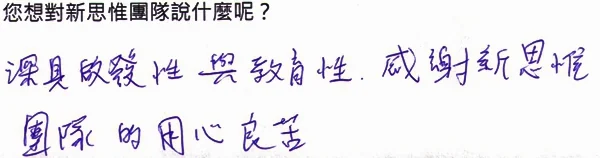 您想對新思惟團隊說什麼呢？
深具啟發性與教育性. 感謝新思惟
團隊的用心良苦